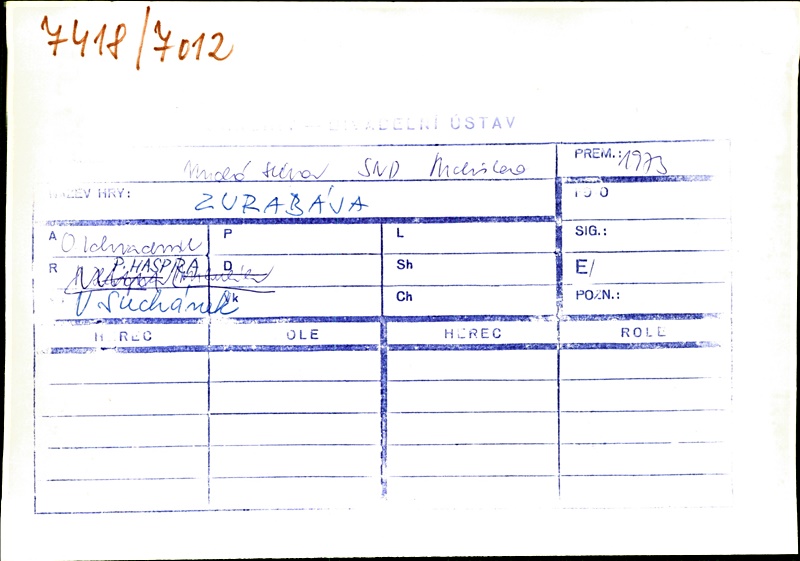 7418/7012
DIVADELNÍ ÚSTAV
Malá scéna SND Bratislava PREM.: 1973
NÁZEV HRY: ZURABÁJA FOTO
A P L SIG.:
R P. HASPRA D Sh E/
V Suchánek Sk Ch POZN.:
HEREC ROLE HEREC ROLE